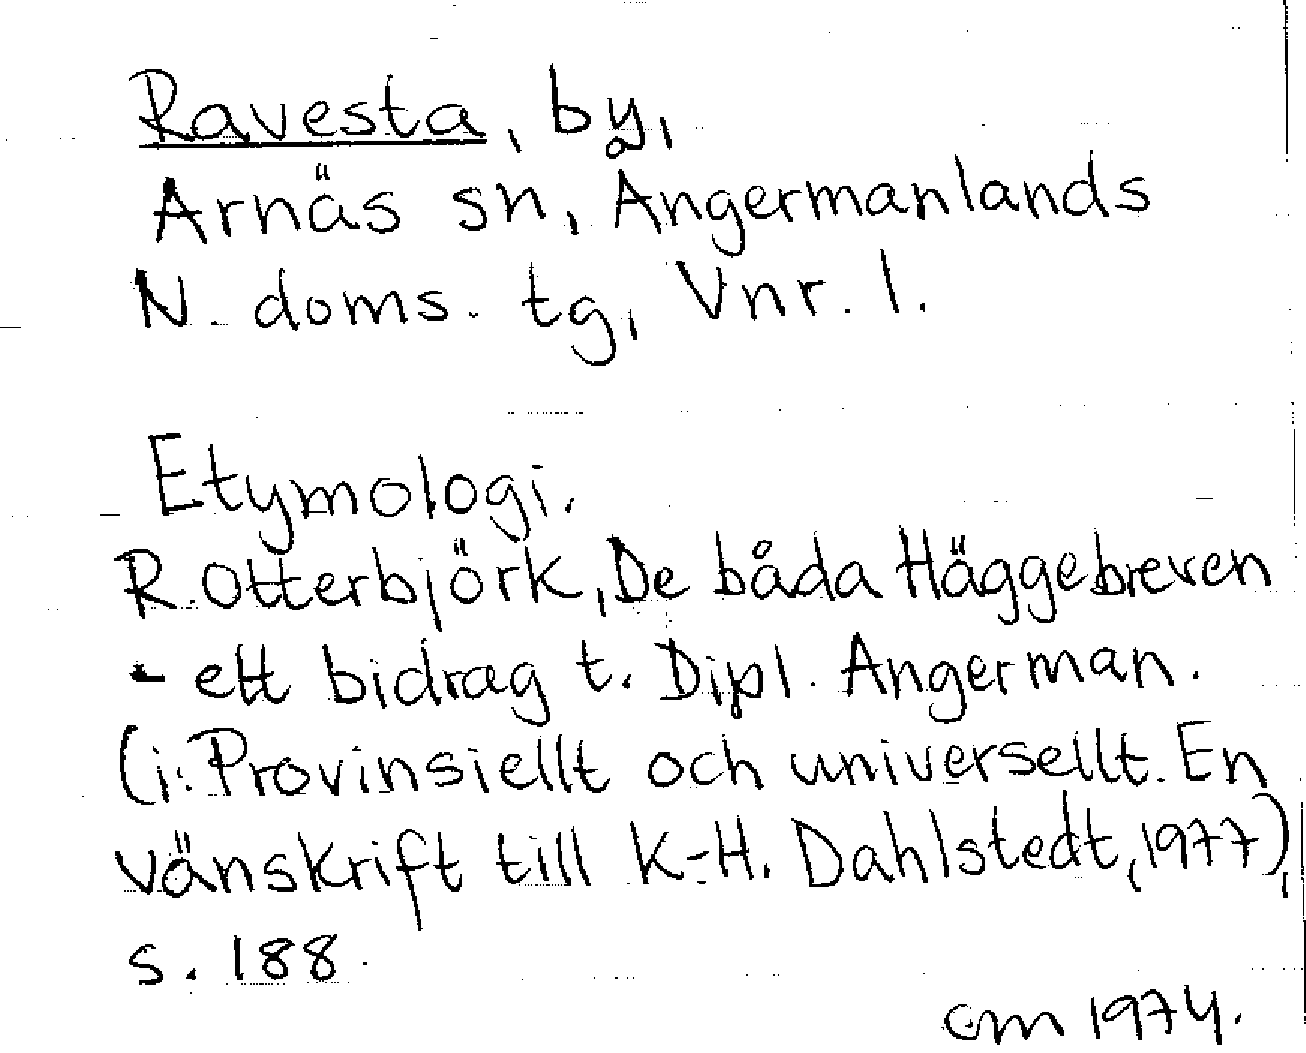 Ravesta, by,
Arnäs sn, Ångermanlands
N. doms. tg, Vnr. 1.
Etymologi.
R. Otterbjörk, De båda Häggebreven
- ett bidrag t. Dipl. Angerman.
(i: Provinsiellt och universellt. En
vänskrift till K-H. Dahlstedt, 1977),
s. 188.
om 1974.